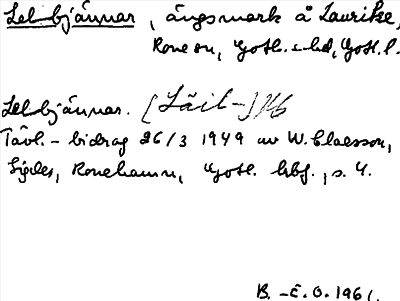 Lelbjännar, ängsmark å Laurike,
Rone sn, Gotl. s. hd, Gotl. l.
Lelbjännar. [Läil-]
Tävl.-bidrag 26/3 1949 av W. Claesson,
Sigdes, Ronehamn, Gotl. hbf., s. 4.
B. -E. O. 1961.